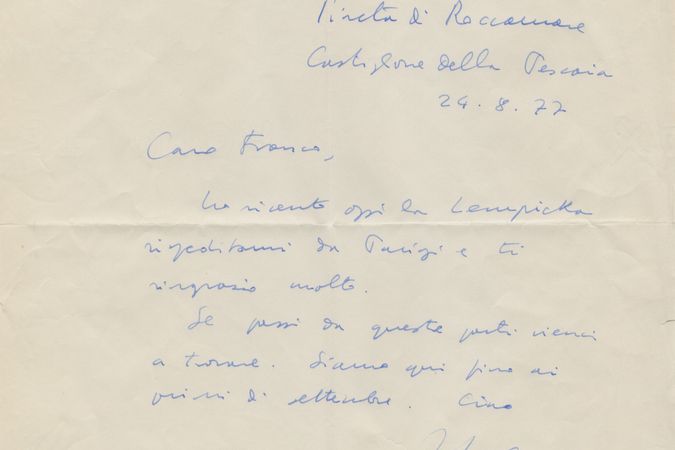 Pineta di Roccamare
Castiglione della Pescaia
24.8.77
Caro Franco,
ho ricevuto oggi la Lempicka
rispeditami da Parigi e ti
ringrazio molto.
Se passi da queste parti vienci
a trovare. Siamo qui fino ai
primi di settembre. Ciao